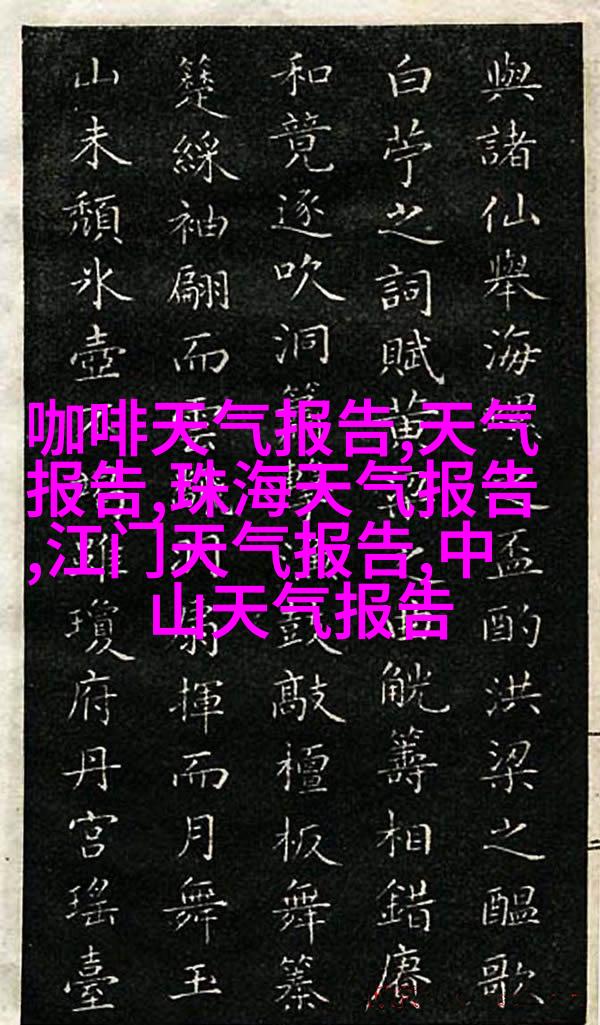 咖啡天气报告,天气
报告,珠海天气报告
,江门天气报告,中
山天气报告
與諸仙舉海之盃酌洪梁之醖歌
白苧之詞賦黃觥籌相錯賡
和竟逐吹洞鼓敲檀板舞纂
簇綵袖翩而雲揮而月舞玉
山未頹氷壺雖瓊府丹宮瑤臺